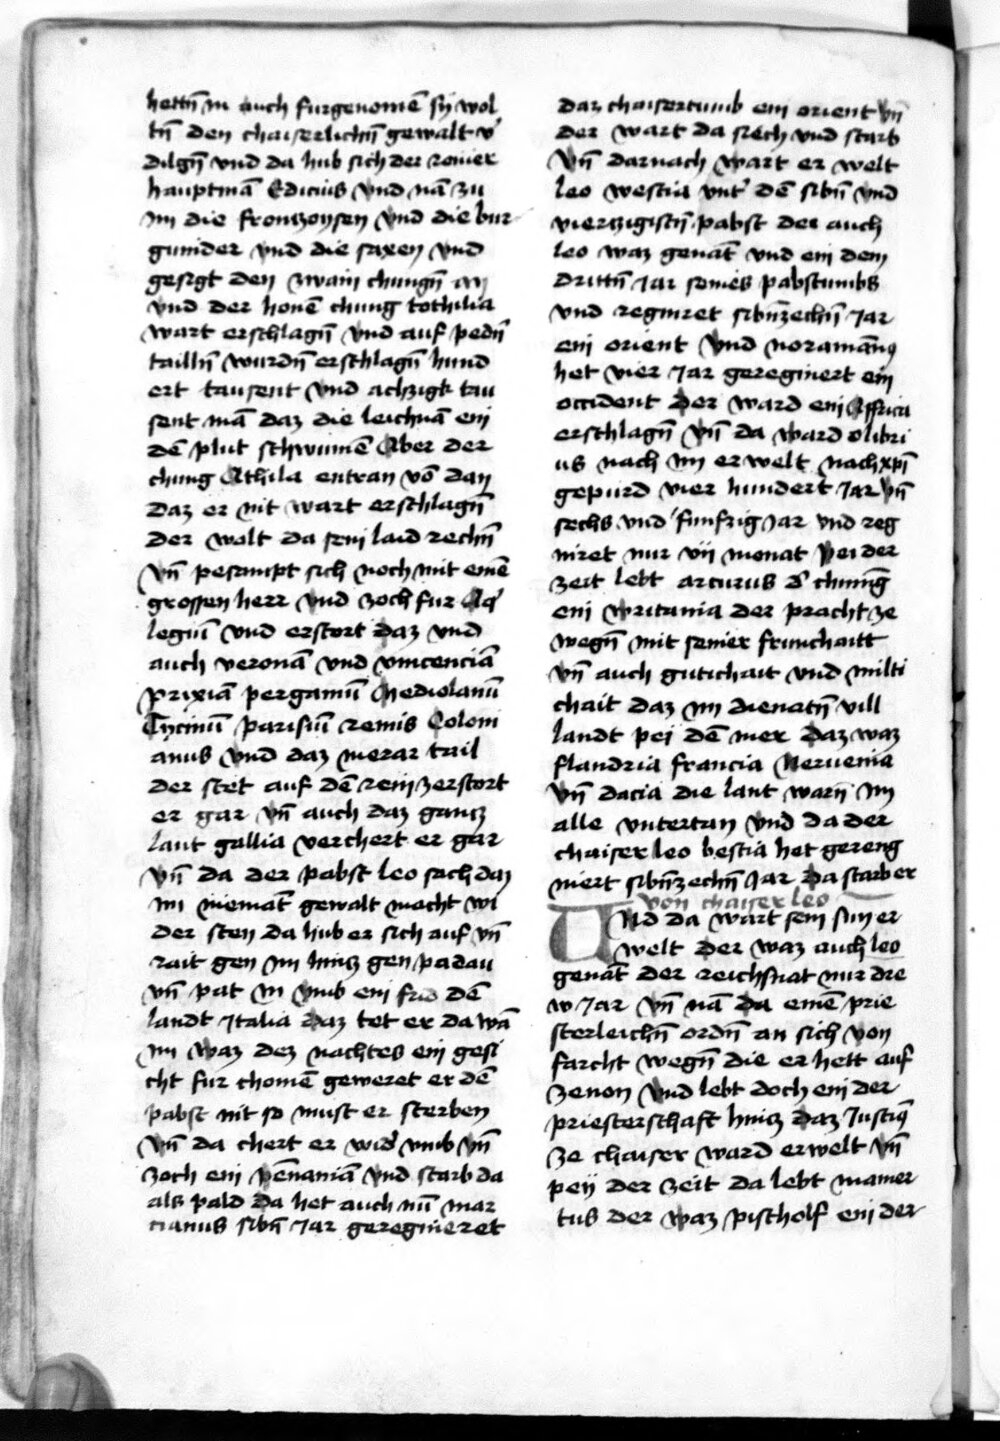 hettn̄ im auch furgenomē sÿ wol
tn̄ den chaiserlichn̄ gewalt v̓
dilgn̄ vnd da hub sich der romer
hauptmā Edicius vnd nā zu
im die fronzoysen vnd die bur
gunider vnd die saxen vnd
gesigt den zwain chungn̄ an
vnd der honē chung tothilia
wart erschlagn̄ vnd auf pedn̄
tailln̄ wurdn̄ erschlagn̄ hund
ert tausent vnd achzigk tau
sent mā daz die leichnā ein
dē plut schwumē Aber der
chung Athila entran vō dan
daz er nit wart erschlagn̄
der wolt da sein laid rechn̄
vn̄ pesampt sich noch mit einē
grossen herr vnd zoch fur Aq̓
legiū vnd erstort daz vnd
auch veronā vnd vincenciā
prixiā pergamū Mediolanū
Tycinū parisiū remis Coloni
anus vnd daz merar tail
der stet auf dē rein zerstort
er gar vn̄ auch daz gancz
lant gallia verchert er gar
vn̄ da der pabst leo sach daz
im niemāt gewalt mocht wi
der sten da hub er sich auf vn̄
rait gen im hincz gen padau
vn̄ pat in vmb ein frid dē
landt Italia daz tet er da wā
im waz dez nachtes ein gesi
cht fur chomē geweret er dē
pabst nit so must er sterben
vn̄ da chert er wid̓ vmb vn̄
zoch ein pēnaniā vnd starb da
als pald da het auch nū mar
cianus sibn̄ Jar geregnieret
daz chaisertumb ein orient vn̄
der wart da siech vnd starb
vn̄ darnach wart er welt
leo westia vnt̓ dē sibn̄ vnd
vierzigistn̄ pabst der auch
leo waz genāt vnd ein dem
drittn̄ Jar seines pabstumbs
vnd regniret sibn̄zechn̄ Jar
ein orient vnd noramāng
het vier Jar geregniert ein
occident der ward ein Affrica
erschlagn̄ vn̄ da ward olibri
us nach im erwelt nach xpī
gepurd vier hundert Jar vn̄
sechs vnd funfzig Jar vnd reg
niret nur vii monat Pei der
zeit lebt arturus d̓ chunīg
ein writania der pracht ze
wegn̄ mit seiner frumchaitt
vn̄ auch gutichait vnd milti
chait daz im dienatn̄ vill
landt pei dē mer daz waz
flandria francia Neruenia
vn̄ dacia die lant warn̄ im
alle vntertan vnd da der
chaiser leo bestia het gereng
niert sibn̄zechn̄ Jar da starb er
von chaiser leo
Vnd da wart sein sun er
welt der waz auch leo
genāt der reichsnat nur dre
w Jar vn̄ nā da einē prie
sterleichn̄ ordn̄ an sich von
farcht wegn̄ die er hett auf
zenon vnd lebt doch ein der
priesterschaft hincz daz Justiq̓
ze chaiser ward erwelt vn̄
peÿ der zeit da lebt mamer
tus der waz pischolf ein der